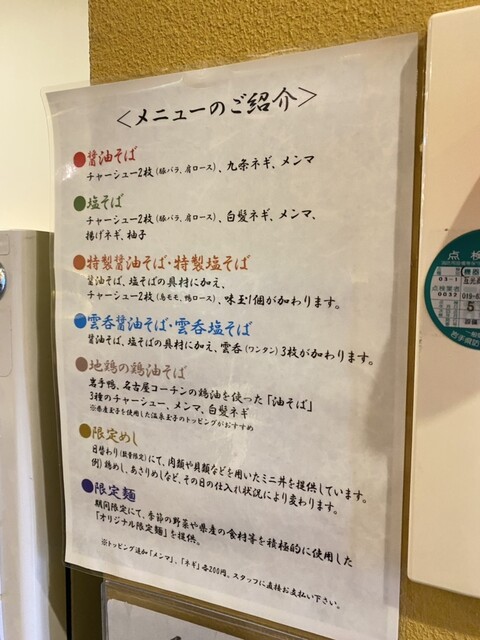 <メニューのご紹介>
●醤油そば
チャーシュー2枚(豚バラ、肩ロース)、九条ネギ、メンマ
●塩そば
チャーシュー2枚(豚バラ、肩ロース)、白髪ネギ、メンマ、
揚げネギ、柚子
●特製醤油そば・特製塩そば
醤油そば、塩そばの具材に加え、
チャーシュー2枚(鳥モモ、鴨ロース)、味玉1個が加わります。
●雲呑醤油そば・雲呑塩そば
醤油そば、塩そばの具材に加え、雲呑(ワンタン)3枚が加わります。
●地鶏の鶏油そば
岩手鴨、名古屋コーチンの鶏油を使った「油そば」
3種のチャーシュー、メンマ、白髪ネギ
※県産玉子を使用した温泉玉子のトッピングがおすすめ
●限定めし
日替わり(数量限定)にて、肉類や貝類などを用いたミニ丼を提供しています。
例)鶏めし、あさりめしなど、その日の仕入れ状況により変わります。
●限定麺
期間限定にて、季節の野菜や県産の食材等を積極的に使用した
「オリジナル限定麺」を提供。
※トッピング追加「メンマ」、「ネギ」各200円。スタッフに直接お支払い下さい。
点検
03-1
点検業者
0032
5